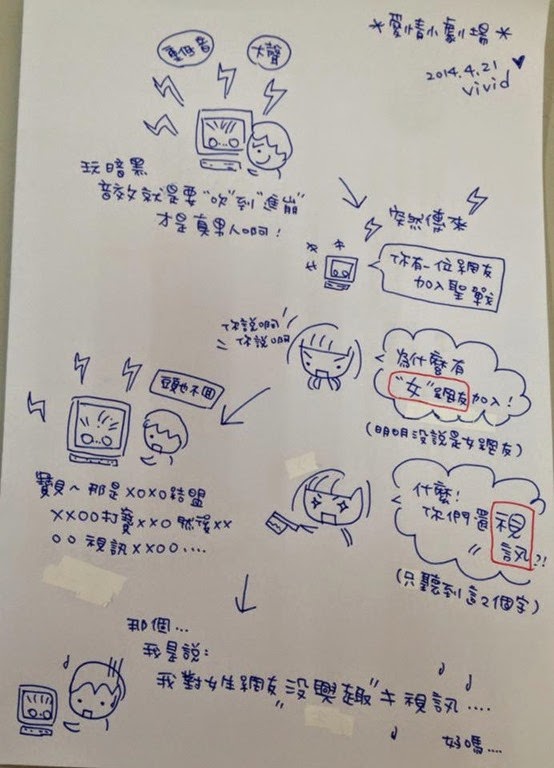 *愛情小劇場*
2014.4.21
vivid
重低音
大聲
玩暗黑
音效就是要"吹"到"進崩"
才是真男人啊!
突然傳來
你有一位網友
加入聖戰
你說啊!
你說啊
為什麼有
"女"網友加入!
(明明沒說是女網友)
頭也不回
寶貝~那是XOXO結盟
XXOO打寶XXO然後XX
OO視訊XXOO....
什麼!
你們還視
訊?!
(只聽到這2個字)
那個...
我是說:
我對女生網友"沒興趣"キ視訊....
好嗎....